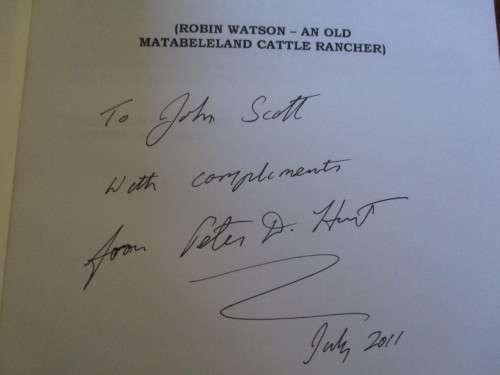 (ROBIN WATSON – AN OLD
MATABELELAND CATTLE RANCHER)
To John Scott
With compliments
from Peter D. Hunt
July 2011